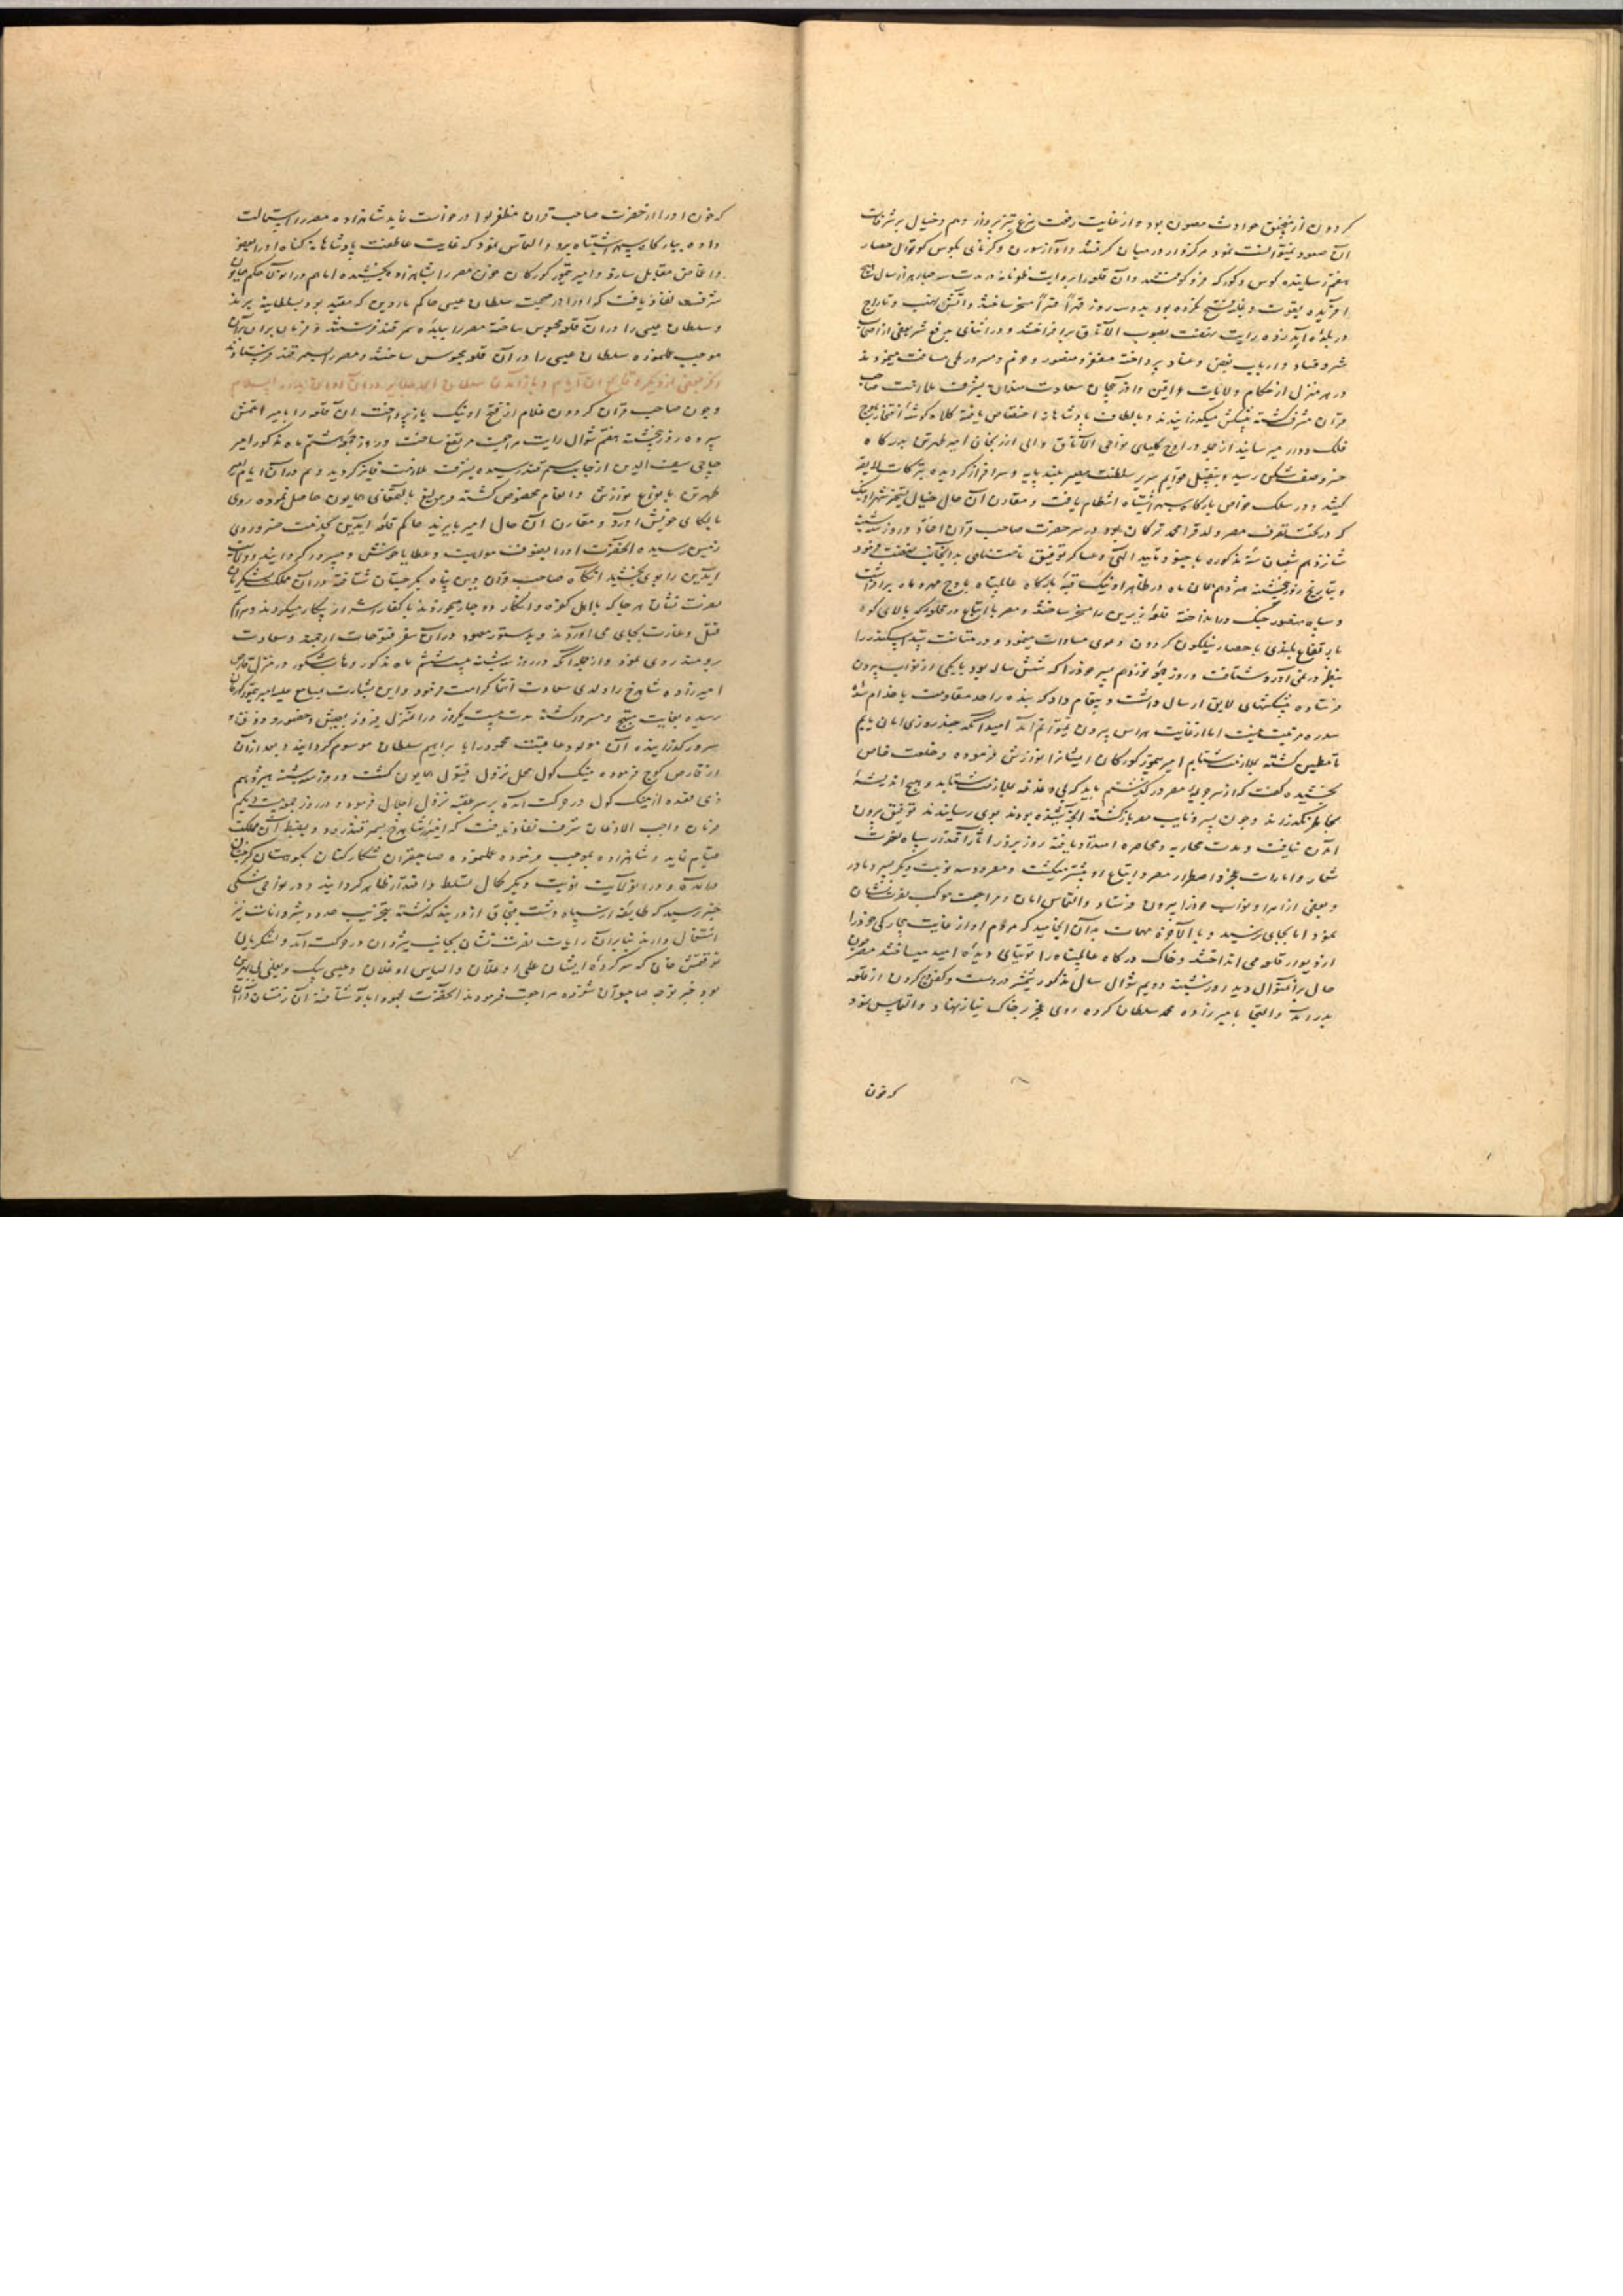 کردون از منجنیق حوادث مصون بود و از غایت رفعت مرغ تیزپرواز وهم و خیال بر شرفات
آن صعود نمیتوانست نمود مرکزوار در میان گرفتند و آواز سورن و کرنای بگوش کوتوال حصار
هفتم رسانیده کوس و کورکه فرو کوفتند و آن قلعه را بروایت ظفرنامه در مدت سه چهار هزار سال هیچ
آفریده بقوت و غلبه فتح نکرده بود بدو سه روز قهراً قسراً مسخر ساختند و آتش نهب و تاراج
در بلده آمد زده رایت نهضت بصوب الاتاق برافراختند و در اثنای رفع شر بعضی از اصحاب
شر و فساد و ارباب بغض و عناد پرداخته مظفر و منصور و خرم و مسرور طی مسافت میفرمودند
در هر منزل از حکام ولایات و اذربیجان سعادت مندان بشرف ملازمت صاحب
قران مشرف گشته پیشکش میگذرانیدند و بالطاف پادشاهانه اختصاص یافته کلاه گوشه افتخار باوج
فلک دوار میرسانیدند از جمله در نواحی الاتاق والی ارزنجان امیر طهرتن بدرگاه
خسرو صف شکن رسید و بتقبیل قوایم سریر سلطنت مصیر بلند پایه و سرافراز گردیده تبرکات لایقه
کشید و در سلک خواص بارگاه سپهر اشتباه انتظام یافت و مقارن آن حال خیال تسخیر شهر اونیک
که در تحت تصرف مصر ولد قرا محمد ترکمان بود در سر حضرت صاحب قران افتاد و روز سه شنبه
شانزدهم شعبان سنه مذکوره با جنود تایید الهی و عساکر توفیق نامتناهی بدانجانب نهضت فرمود
و بتاریخ روز پنجشنبه هژدهم همان ماه در ظاهر اونیک قبه بارگاه عالم پناه باوج مهر و ماه برافراشت
و سپاه منصور جنگ درانداخته قلعه زیرین را مسخر ساختند و مصر با اتباع در قلعه که بالای کوه
بارتفاع بلندی با حصار نیلگون گردون دعوی مساوات مینمود و در متانت سد اسکندر را
بنظر در نمی آورد شتافت و روز جمعه نوزدهم پسر خود را که شش ساله بود با یکی از نواب بیرون
فرستاده پیشکشهای لایق ارسال داشت و پیغام داد که بنده را حد مقاومت با خدام سده
سدره مرتبت نیست اما از غایت هراس بیرون نمیتوانم آمد امید آنکه چند روزی امان یابم
تا مطمئن گشته بملازمت شتابم امیر تیمور گورکان ایشانرا نوازش فرموده و خلعت خاص
بخشیده گفت که از سر جرایم مصر در گذشتم باید که بی دغدغه بملازمت شتابد و هیچ اندیشه
بخاطر نگذراند و چون پسر و نایب مصر بازگشته آنچه شنیده بودند بوی رسانیدند توفیق بیرون
آمدن نیافت و مدت محاربه و محاصره امتداد یافته روز بروز آثار اقتدار سپاه نصرت
شعار و امارات عجز و اضطرار مصر و اتباع او بیشتر میگشت و مصر دو سه نوبت دیگر پسر و مادر
و بعضی از امرا و نواب خود را بیرون فرستاد و التماس امان و مراجعت موکب نصرت نشان
نمود اما بجای نرسید و بالاخره مهمات بدان انجامید که مردم او از غایت بیچارگی خود را
از دیوار قلعه می انداختند و خاک درگاه عالم پناه را توتیای دیده امید میساختند مصر چون
حال بر آنمنوال دید روز شنبه دویم شوال سال مذکور شمشیر در دست و کفن در گردن از قلعه
بدر آمد و التجا بامیرزاده محمد سلطان کرده روی عجز بر خاک نیاز نهاد و التماس نمود
که خون
که خون او را از حضرت صاحب قران مظفر لوا درخواست نماید شاهزاده مصر را استمالت
داده ببارگاه سپهر اشتباه برد و التماس نمود که غایت عاطفت پادشاهانه گناه او را بعفو
و اغماض مقابل سازد و امیر تیمور گورکان خون مصر را بشاهزاده بخشیده اما هم در آنولا حکم همایون
شرف نفاذ یافت که او را در صحبت سلطان عیسی حاکم ماردین که مقید بود بسلطانیه برند
و سلطان عیسی را در آن قلعه محبوس ساخته مصر را ببلده سمرقند فرستند و فرمان بران بر آن
موجب عملنموده سلطان عیسی را در آن قلعه محبوس ساختند و مصر را بسمرقند فرستادند
ذکر بعضی از دیگر وقایع آن ایام و باز آمدن سلطان احمد جلایر در آن اوان بدار السلام
و چون صاحب قران گردون غلام از فتح اونیک بازپرداخت آن قلعه را بامیر اتلمش
سپرده روز پنجشنبه هفتم شوال رایت مراجعت مرتفع ساخت و روز جمعه هشتم ماه مذکور امیر
حاجی سیف الدین از جانب سمرقند رسیده بشرف ملازمت فایز گردید و هم در آن ایام امیر
طهرتن بانواع نوازش و انعام مخصوص گشته و یرلیغ بالتمغای همایون حاصل نموده روی
بالکای خویش آورد و مقارن آن حال امیر بایزید حاکم قلعه ایدین بخدمت خسرو روی
زمین رسیده آنحضرت او را بصنوف مواهب و عطایا خوشدل و مسرور گردانید و ولایت
ایدین را بوی بخشید آنگاه صاحب قران دین پناه بگرجستان شتافته در آن مملکت لشکریان
نصرت نشان هر جا که با اهل کفره و انکار دوچار میخوردند با کفار شرار پیکار میکردند و مراسم
قتل و غارت بجای می آوردند و بدستور معهود در آن سفر فتوحات ارجمند و سعادت
رومند روی نمود و از جمله آنکه در روز سه شنبه بیست ششم ماه مذکور در منزل قارص
امیرزاده شاهرخ را ولدی سعادت انتما کرامت فرمود و این بشارت بمسامع علیه امیر تیمور گورکان
رسیده بغایت مبتهج و مسرور گشته مدت بیست یکروز در آن منزل فیروز بعیش و حضور و ذوق و
سرور گذرانیده آن مولود عاقبت محمود را بابراهیم سلطان موسوم گردانید و بعد از آن
از قارص کوچ فرموده مینک کول محل نزول فیتول همایون گشت و روز سه شنبه هیژدهم
ذی قعده از مینک کول در حرکت آمده بر سر عقبه نزول اجلال فرمود و در روز جمعه بیست ویکم
فرمان واجب الاذعان شرف نفاذ یافت که امیرزاده شاهرخ بسمرقند رود و بضبط آن مملکت
قیام نماید و شاهزاده بموجب فرموده عملنموده صاحبقران شکارکنان بکوهستان گرجستان
درآمد و در آنولایت نوبت دیگر کمال تسلط و اقتدار ظاهر گردانید و در نواحی شکی
خبر رسید که طایفه از سپاه دشت قبچاق از دربند گذشته بتخریب حدود شروانات نیز
اشتغال دارند بنابرآن رایات نصرت نشان بجانب شروان در حرکت آمد و لشکریان
توقتمش خان که سرکرده ایشان علی اوغلان و الیاس اوغلان و عیسی بیک و یغلی بی بهرین
بود خبر توجه صاحبقران شنوده مراجعت فرمودند آنحضرت بمحمود اباد شتافته آن زمستان در آن